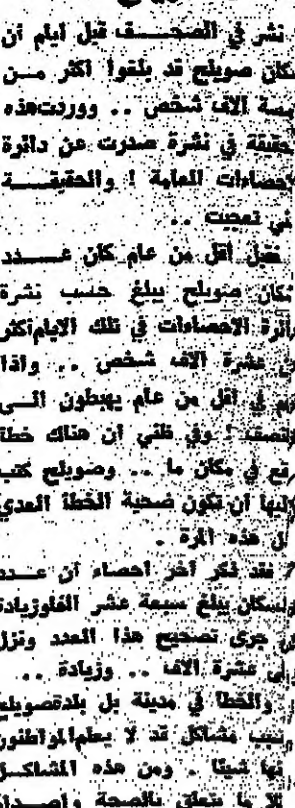 نشر في الصحف قبل ايام ان
سكان صويلح قد بلغوا اكثر من
خمسة الاف شخص .. ووردت هذه
الحقيقة في نشرة صدرت عن دائرة
الاحصاءات العامة ! والحقيقة
انني تعجبت ..
فقبل أقل من عام كان عدد
سكان صويلح يبلغ حسب نشرة
دائرة الاحصاءات في تلك الايام اكثر
من عشرة الاف شخص .. واذا
بهم في اقل من عام يهبطون الى
النصف ! وفي ظني ان هناك خطأ
وقع في مكان ما .. وصويلح كتب
عليها أن تكون ضحية الخطأ العددي
في هذه المرة .
فقد ذكر آخر احصاء ان عدد
السكان يبلغ سبعة عشر الفا وزيادة
جرى تصحيح هذا العدد ونزل
الى عشرة الاف .. وزيادة ..
والخطأ في مدينة بل بلدة صويلح
يسبب مشاكل قد لا يعلم المواطنون
بها شيئا . ومن هذه المشاكل
ما يتعلق بالصحة